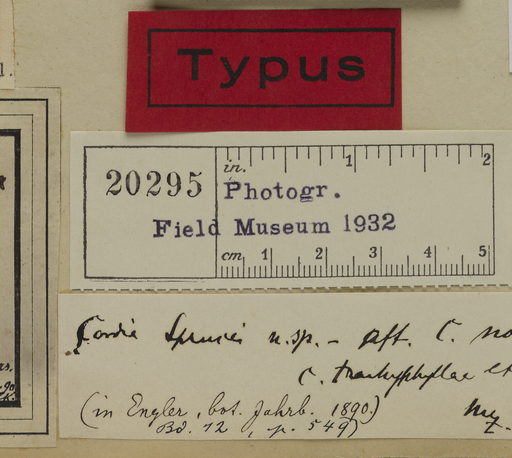 Typus
20295
in. 1 2
Photogr.
Field Museum 1932
cm 1 2 3 4 5
Cordia Sprucei n. sp. – aff. C. no
C. trachyphyllae et
(in Engler, bot. Jahrb. 1890.)
Bd. 12, p. 549)